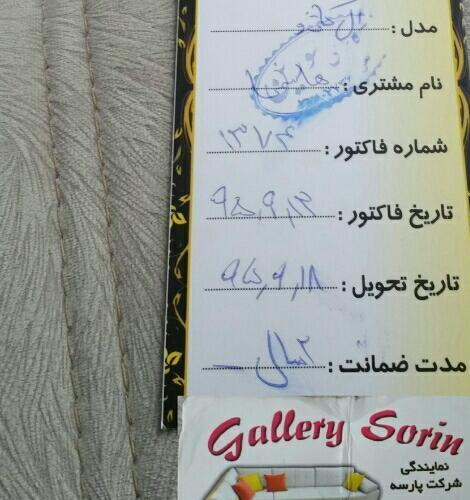 مدل :
نام مشتری :
شماره فاکتور : ۱۳۷۴
تاریخ فاکتور : ۹۵,۹,۱۳
تاریخ تحویل : ۹۵,۹,۱۸
مدت ضمانت : ۲ سال
Gallery Sorin
نمایندگی
شرکت پارسه